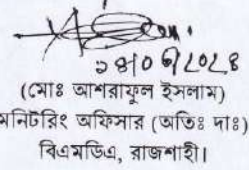 ২৪/০৬/২০২৪
(মোঃ আশরাফুল ইসলাম)
মনিটরিং অফিসার (অতিঃ দাঃ)
বিএমডিএ, রাজশাহী।